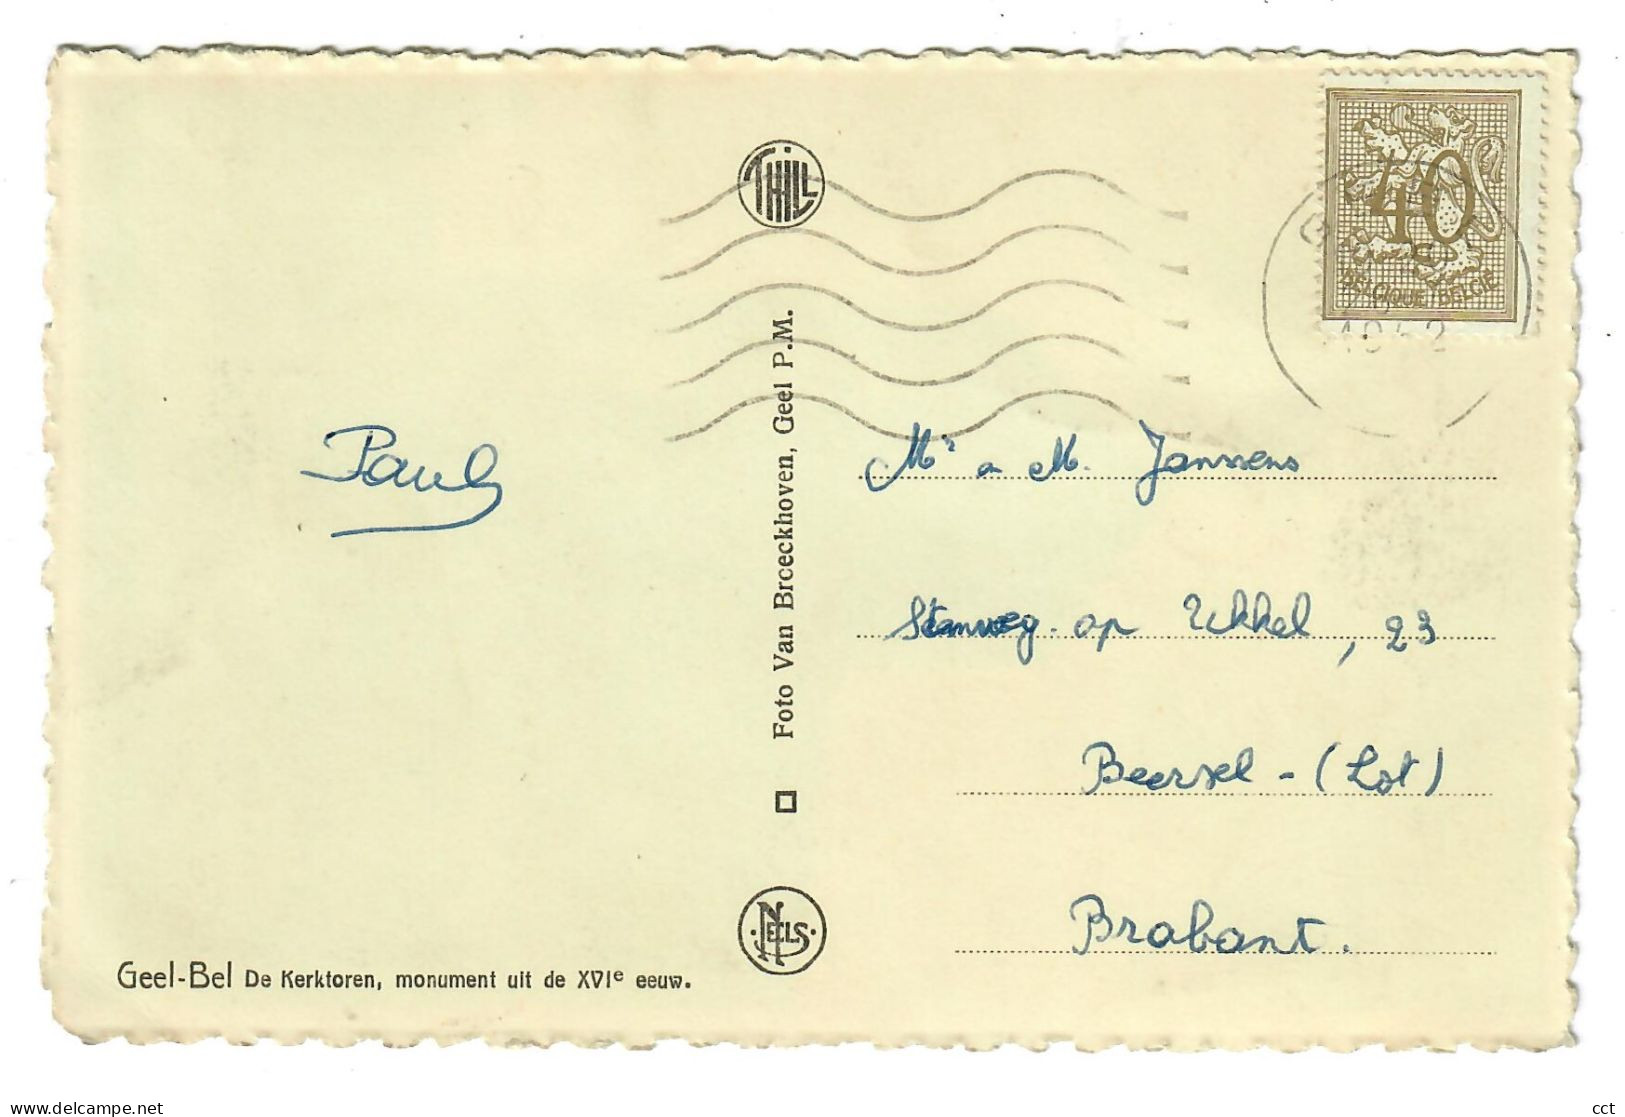 THILL
40
BELGIQUE BELGIË
1952
Paul
Foto Van Broeckhoven, Geel P.M.
Mr a M. Janssens
Steenweg op Ukkel, 23
Beersel - (Lot)
Brabant.
NEELS
Geel-Bel De Kerktoren, monument uit de XVIe eeuw.
delcampe.net
cct